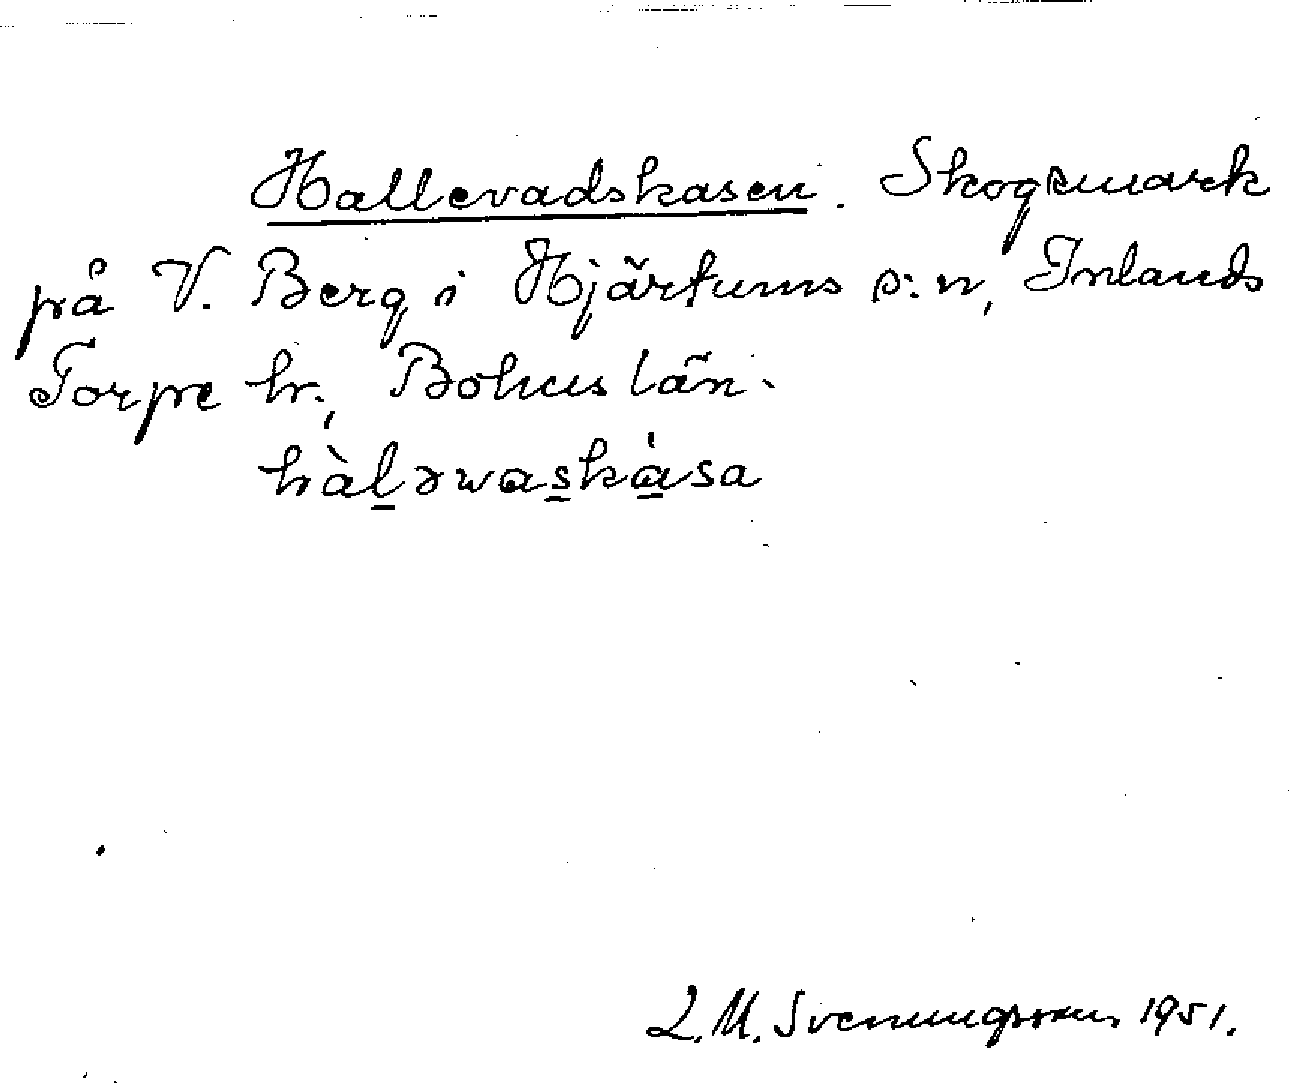 Hallevadskasen. Skogsmark
på V. Berg i Hjärtums s:n, Inlands
Torpe hr., Bohuslän.
hàl̲əwas̲ká̲sa
L.M. Svenungsson 1951.